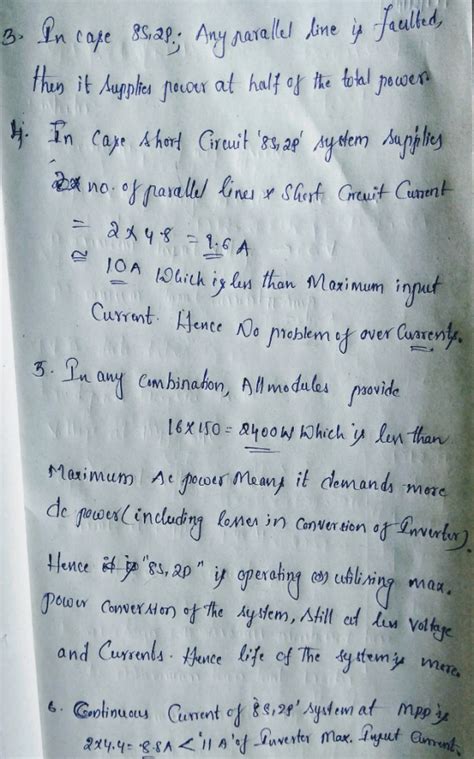 3. In case 8S,2P; Any parallel line is faulted,
then it supplies power at half of the total power.
4. In case short Circuit '8S,2P' system supplies
no. of parallel lines x Short Circuit Current
= 2x4.8 = 9.6A
≅ 10A Which is less than Maximum input
Current. Hence No problem of over Currents.
5. In any Combination, All modules provide
16x150 = 2400W Which is less than
Maximum Ac power Means it demands more
dc power (including losses in conversion of Inverter)
Hence "8S,2P" is operating (or) utilising max.
power conversion of the system, still at less voltage
and Currents. Hence life of the system is more.
6. Continuous Current of '8S,2P' system at MPP is
2x4.4 = 8.8A < '11A' of Inverter Max. Input Current.